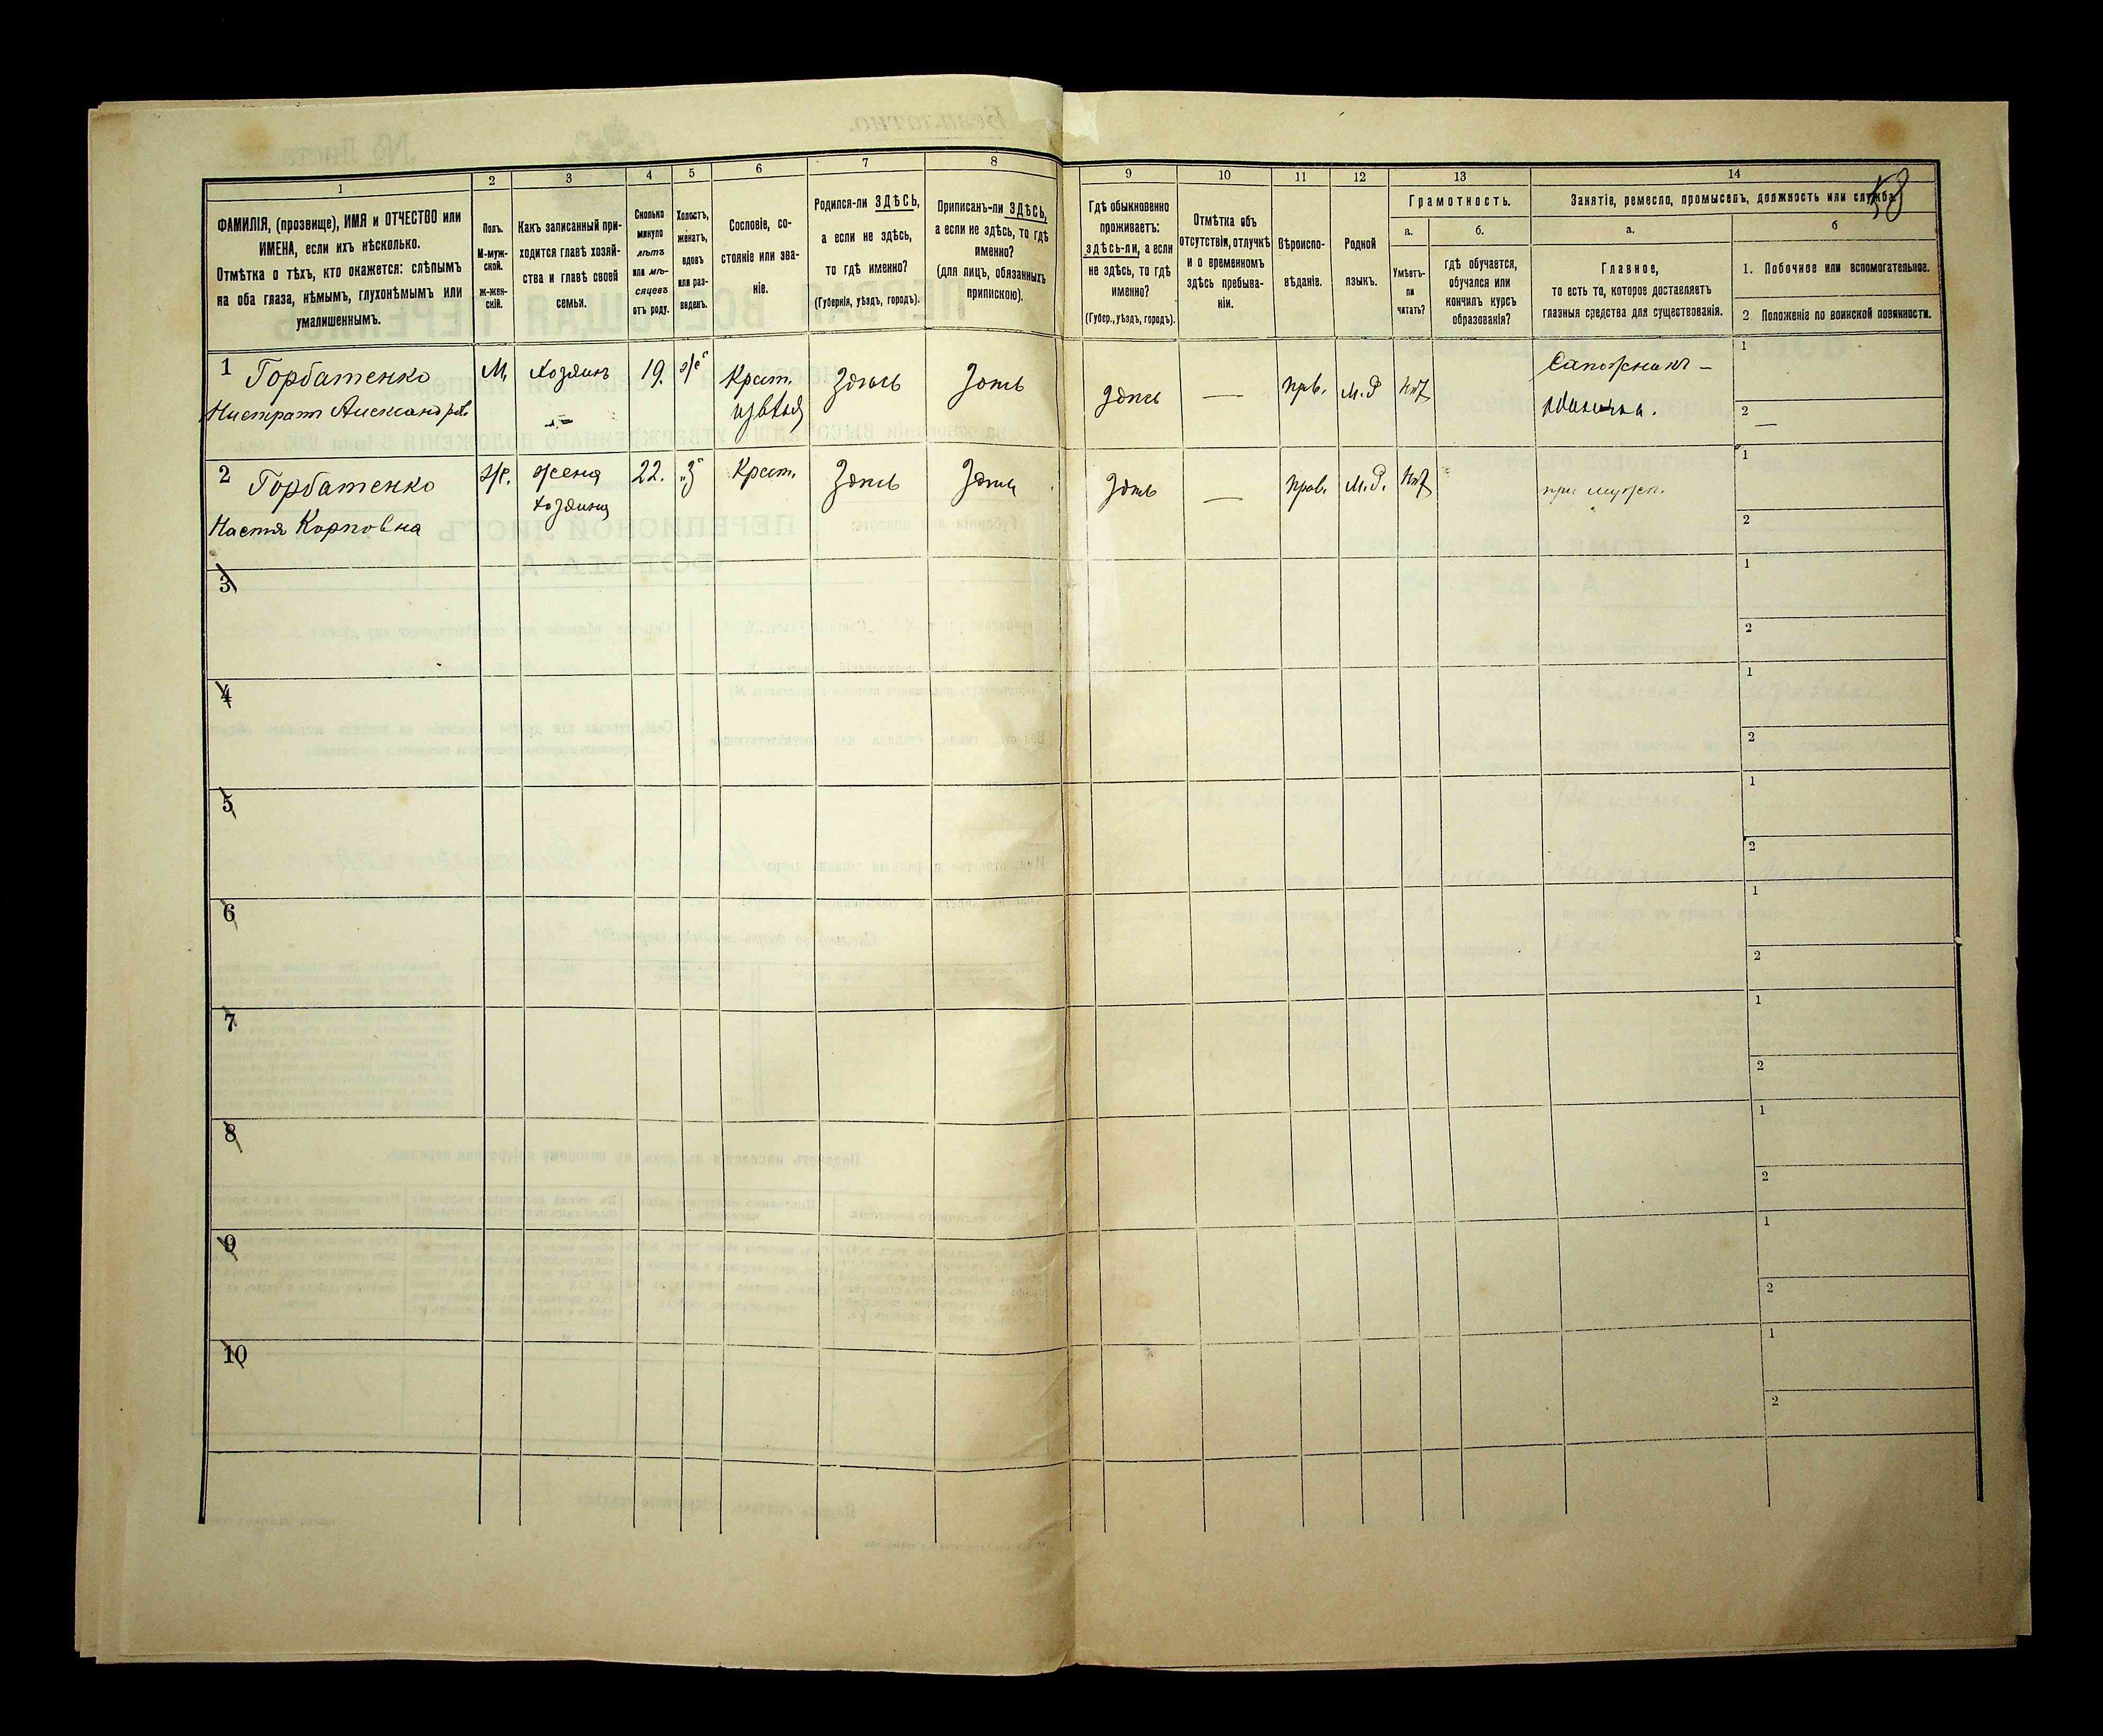 58
1 2 3 4 5 6 7 8 9 10 11 12 13 14
ФАМИЛІЯ, (прозвище), ИМЯ и ОТЧЕСТВО или
ИМЕНА, если ихъ нѣсколько.
Отмѣтка о тѣхъ, кто окажется: слѣпымъ
на оба глаза, нѣмымъ, глухонѣмымъ или
умалишеннымъ.
Полъ.
М-муж-
ской.
Ж-жен-
скій.
Какъ записанный при-
ходится главѣ хозяй-
ства и главѣ своей
семьи.
Сколько
минуло
лѣтъ
или мѣ-
сяцевъ
отъ роду.
Холостъ,
женатъ,
вдовъ
или раз-
веденъ.
Сословіе, со-
стояніе или зва-
ніе.
Родился-ли ЗДѢСЬ,
а если не здѣсь,
то гдѣ именно?
(Губернія, уѣздъ, городъ).
Приписанъ-ли ЗДѢСЬ,
а если не здѣсь, то гдѣ
именно?
(для лицъ, обязанныхъ
припискою).
Гдѣ обыкновенно
проживаетъ:
здѣсь-ли, а если
не здѣсь, то гдѣ
именно?
(Губер., уѣздъ, городъ).
Отмѣтка объ
отсутствіи, отлучкѣ
и о временномъ
здѣсь пребыва-
ніи.
Вѣроиспо-
вѣданіе.
Родной
языкъ.
Грамотность.
а.
Умѣетъ-
ли
читать?
б.
гдѣ обучается,
обучался или
кончилъ курсъ
образованія?
Занятіе, ремесло, промыселъ, должность или служба.
а.
Главное,
то есть то, которое доставляетъ
главныя средства для существованія.
б
1. Побочное или вспомогательное.
2. Положеніе по воинской повинности.
1 Горбатенко М. Хозяинъ 19. Крест. Здѣсь Здѣсь Здѣсь — прав. М.Р. нѣт Сапожникъ – 1
2 —
2 Горбатенко Ж. жена 22. „З" Крест. Здѣсь Здѣсь Здѣсь — прав. М.Р. нѣт при мужѣ. 1
Настя Карповна хозяина 2
3 1
2
4 1
2
5 1
2
6 1
2
7 1
2
8 1
2
9 1
2
10 1
2